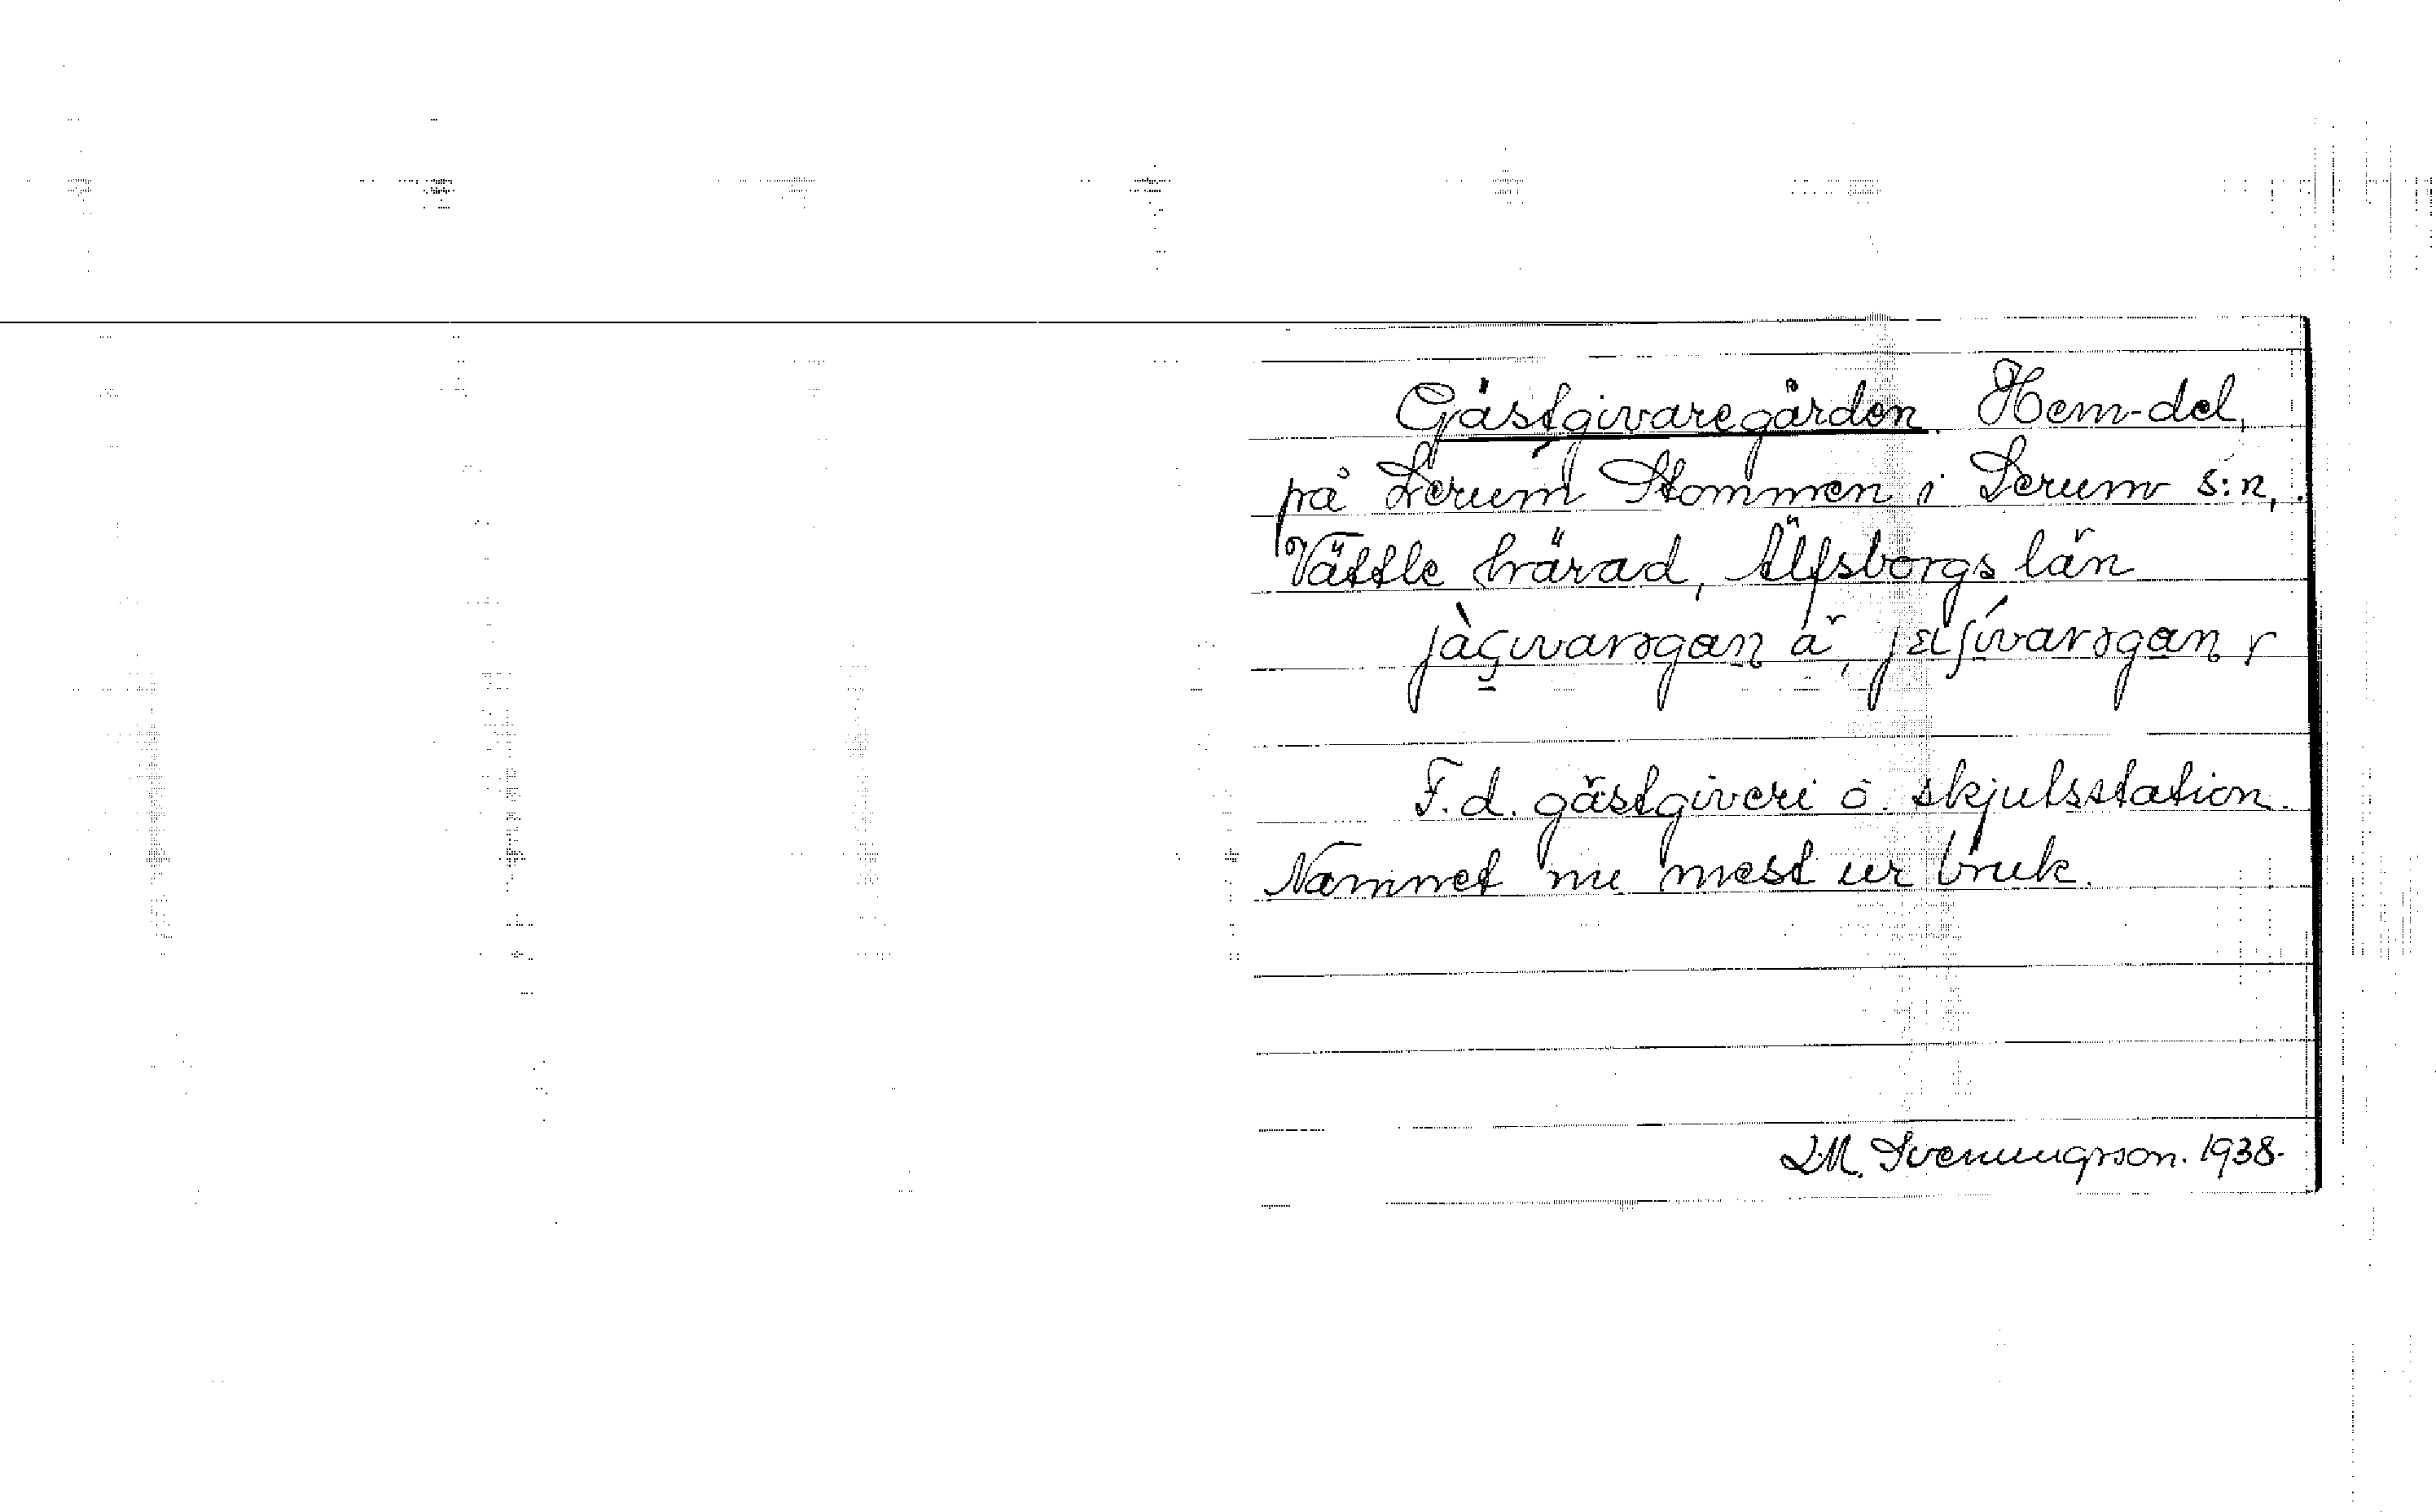 Gästgivaregården. Hem-del,
på Lerum Stommen i Lerum s:n,
Vättle härad, Älfsborgs län
F.d. gästgiveri o. skjutsstation.
Namnet nu mest ur bruk.
S.M. Svenungsson. 1938.